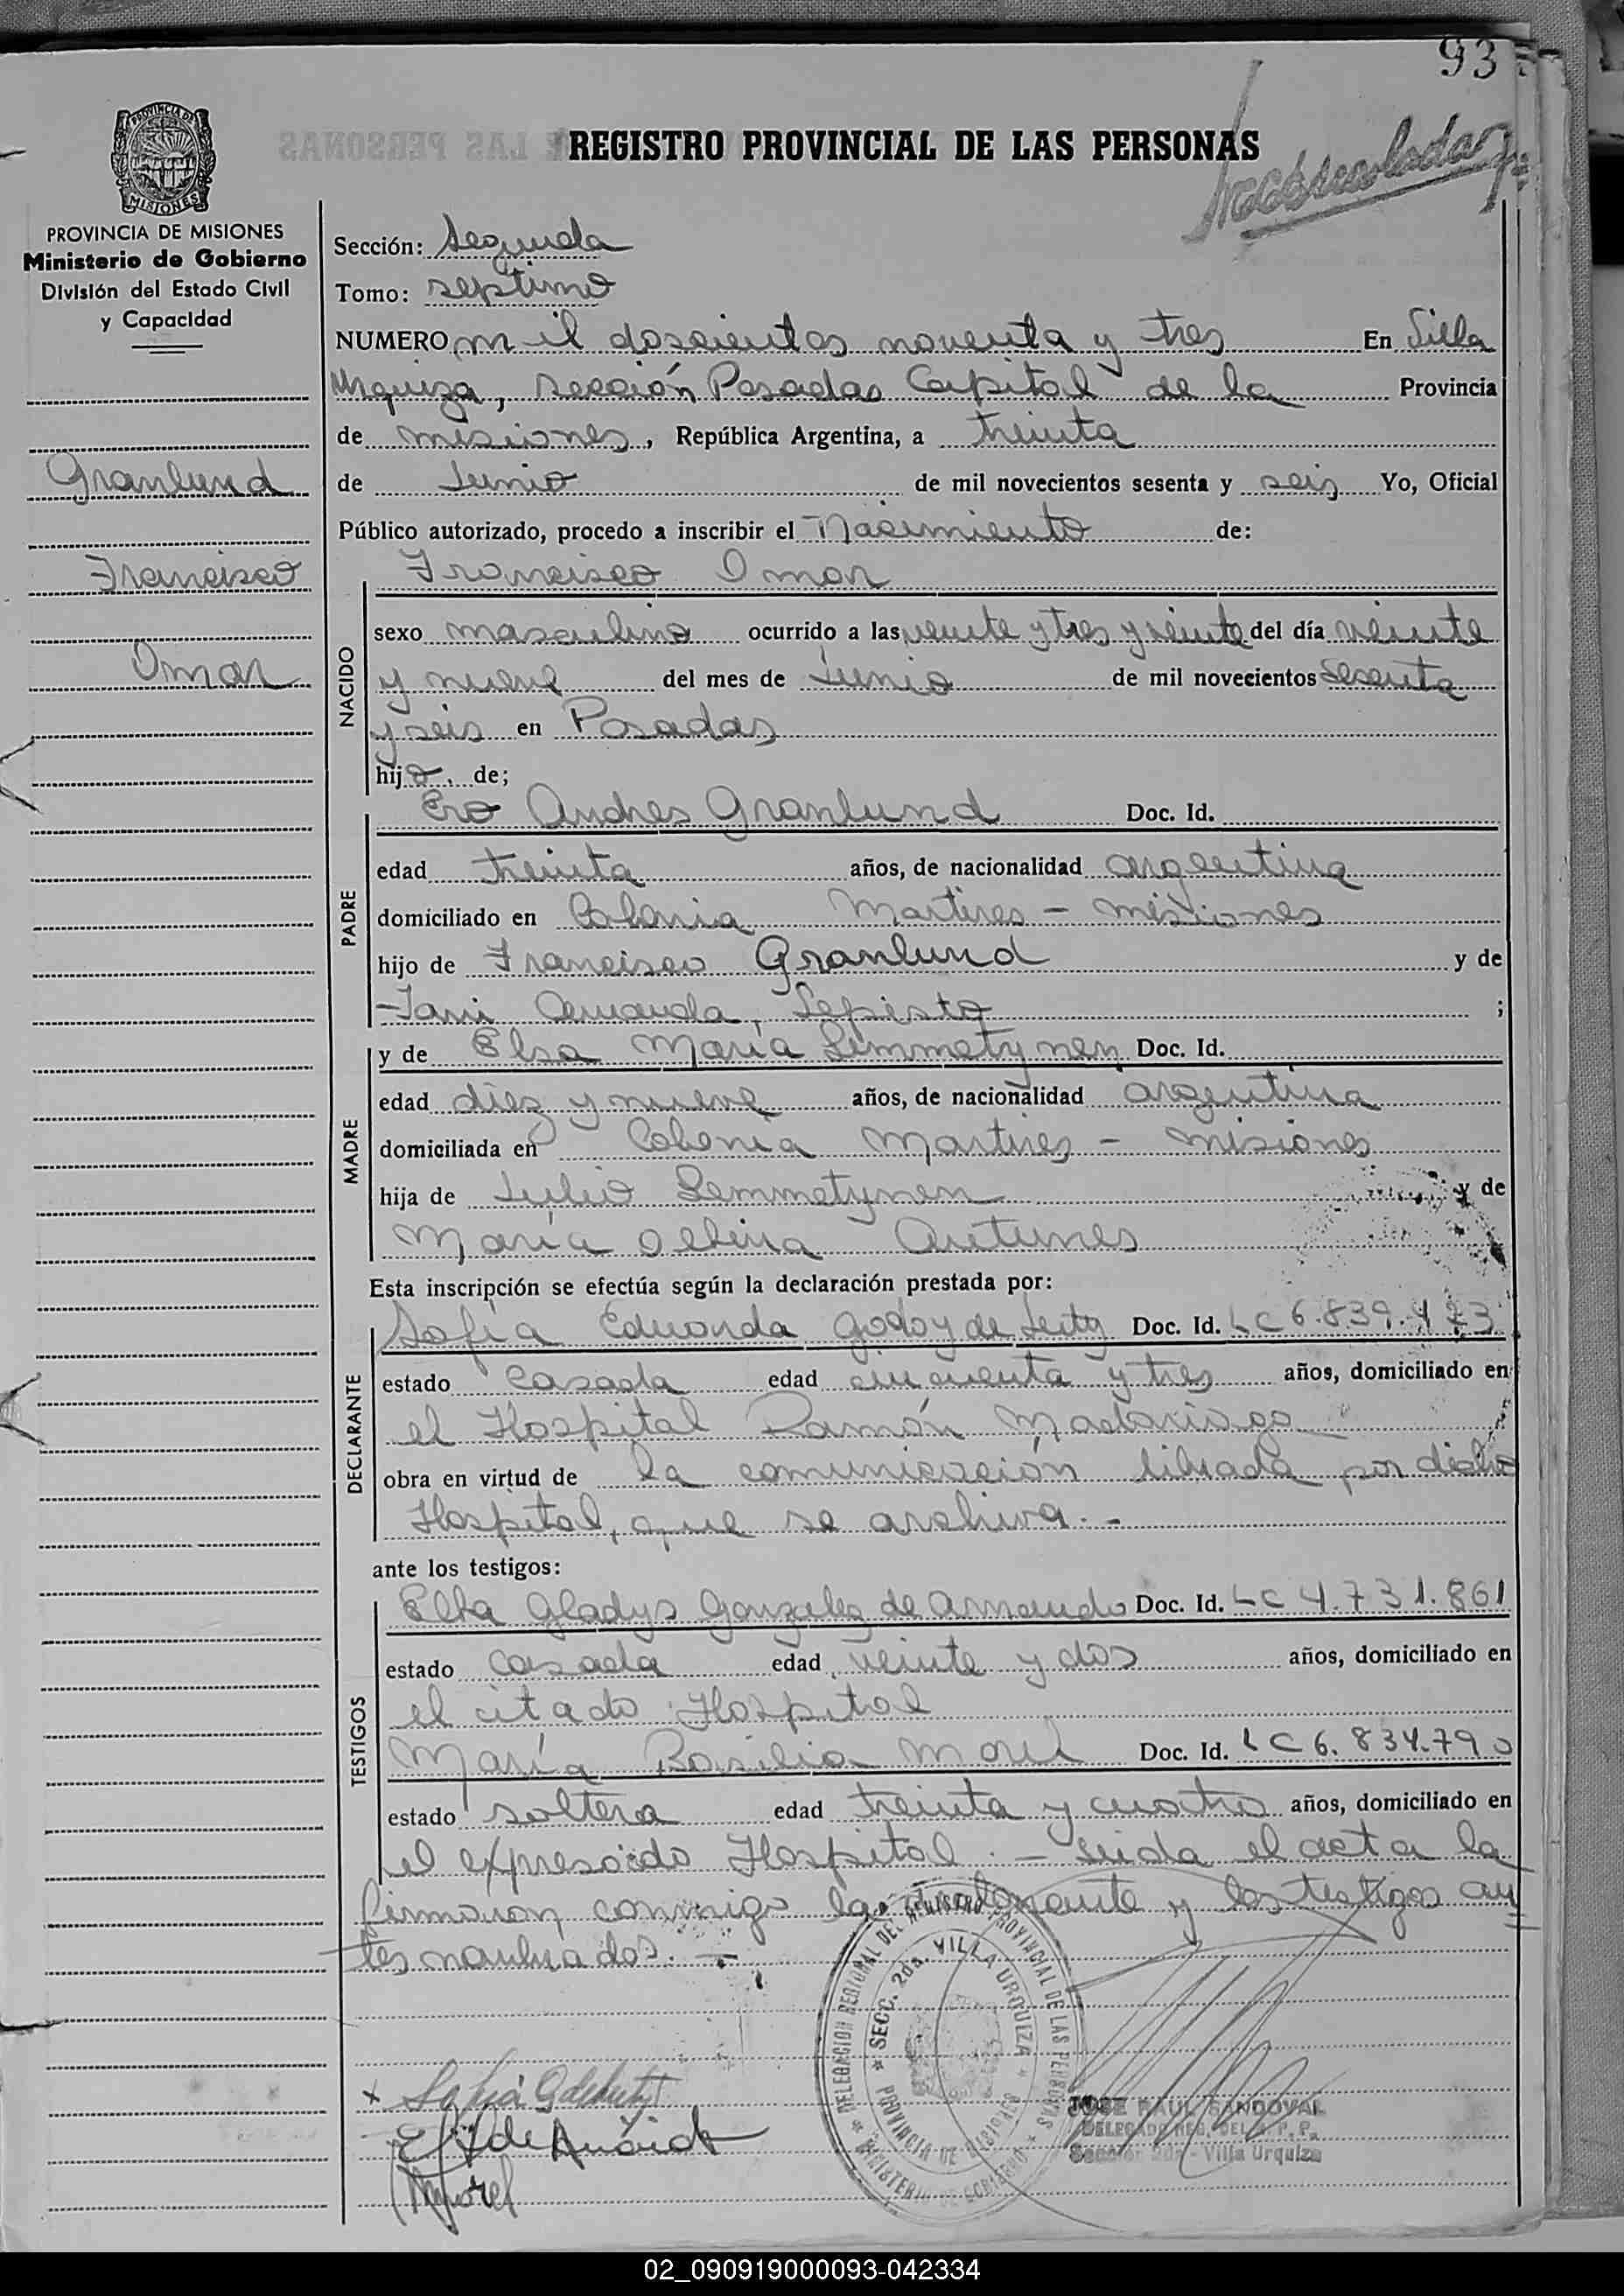 93
REGISTRO PROVINCIAL DE LAS PERSONAS
PROVINCIA DE
MISIONES
PROVINCIA DE MISIONES
Ministerio de Gobierno
División del Estado Civil
y Capacidad
Granlund
Francisco
Omar
Sección: Segunda
Tomo: septimo
NUMERO mil doscientos noventa y tres En Villa
Urquiza, sección Posadas Capital de la Provincia
de misiones, República Argentina, a treinta
de Junio de mil novecientos sesenta y seis Yo, Oficial
Público autorizado, procedo a inscribir el Nacimiento de:
Francisco Omar
NACIDO
sexo masculino ocurrido a las veinte y tres y veinte del día veinte
y nueve del mes de Junio de mil novecientos sesenta
y seis en Posadas
hijo. de;
PADRE
Ero Andres Granlund Doc. Id.
edad treinta años, de nacionalidad argentina
domiciliado en Colonia Martires - misiones
hijo de Francisco Granlund y de
Amanda, Sepisto ;
MADRE
y de Elsa María Lemmetynen Doc. Id.
edad diez y nueve años, de nacionalidad argentina
domiciliada en Colonia Martires - misiones
hija de Julio Lemmetynen y de
María Antunes
Esta inscripción se efectúa según la declaración prestada por:
DECLARANTE
Sofía Eduarda Godoy de Doc. Id. LC 6.839.423
estado casada edad cincuenta y tres años, domiciliado en
el Hospital Ramón Madariaga
obra en virtud de la comunicación librada por dicho
Hospital, que se archiva. -
ante los testigos:
TESTIGOS
Elba Gladys Gonzalez de Doc. Id. LC 4.731.861
estado casada edad veinte y dos años, domiciliado en
el citado Hospital
María Basilia Morel Doc. Id. LC 6.834.790
estado soltera edad treinta y cuatro años, domiciliado en
el expresado Hospital. - Leida el acta la
firmaron conmigo la declarante y los testigos an
tes nombrados. -
DELEGACION REGIONAL DEL REGISTRO PROVINCIAL DE LAS PERSONAS
SECC. 2da. VILLA URQUIZA
PROVINCIA DE MISIONES
MINISTERIO DE GOBIERNO
JOSE RAUL SANDOVAL
DELEGADO REG. DEL R. P. P.
Sección 2da - Villa Urquiza
Morel
02_090919000093-042334